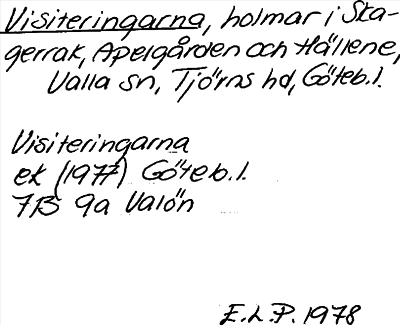 Visiteringarna, holmar i Ska-
gerrak, Apelgården och Hällene,
Valla sn, Tjörns hd, Göteb.l.
Visiteringarna
ek (1977) Göteb.l.
7B 9a Valön
E.L.P. 1978